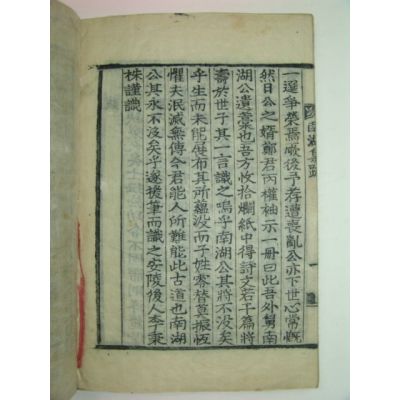 南湖集跋
一
一選爭榮焉厥後予荐遭喪亂公亦下世心常慨
然日公之婿鄭君丙權袖示一冊曰此吾外舅南
湖公遺藁也吾方收拾爛紙中得詩文若干篇將
壽於世子其一言識之嗚乎南湖公其將不沒矣
乎生而未能展布其所蘊沒而子姓零替莫振恆
懼夫泯滅無傳今君能人所難能此古道也南湖
公其永不沒矣乎遂援筆而識之安陵後人李秉
株謹識